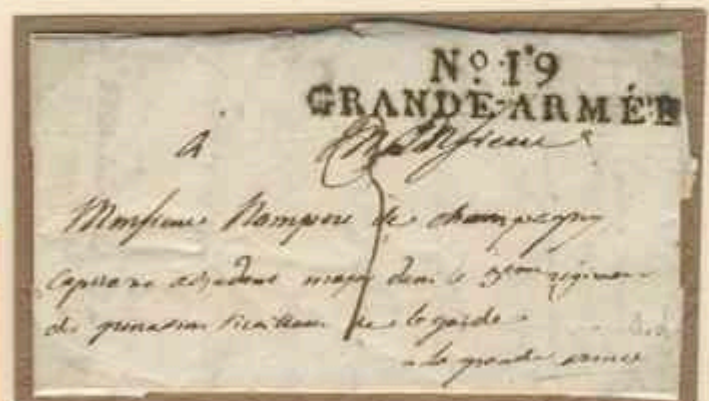 No. 19
GRANDE-ARMÉE
à Monsieur
Monsieur Nompere de Champagny
Capitaine adjudant major dans le 3eme régiment
des grenadiers tirailleurs de la garde
a la grande armée